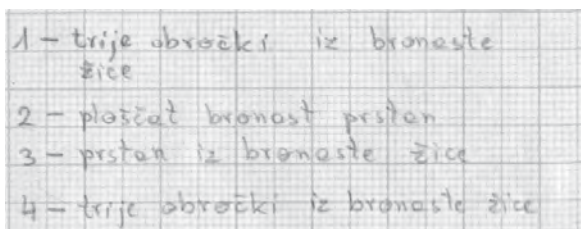 1 – trije obročki iz bronaste
žice
2 – ploščat bronast prstan
3 – prstan iz bronaste žice
4 – trije obročki iz bronaste žice